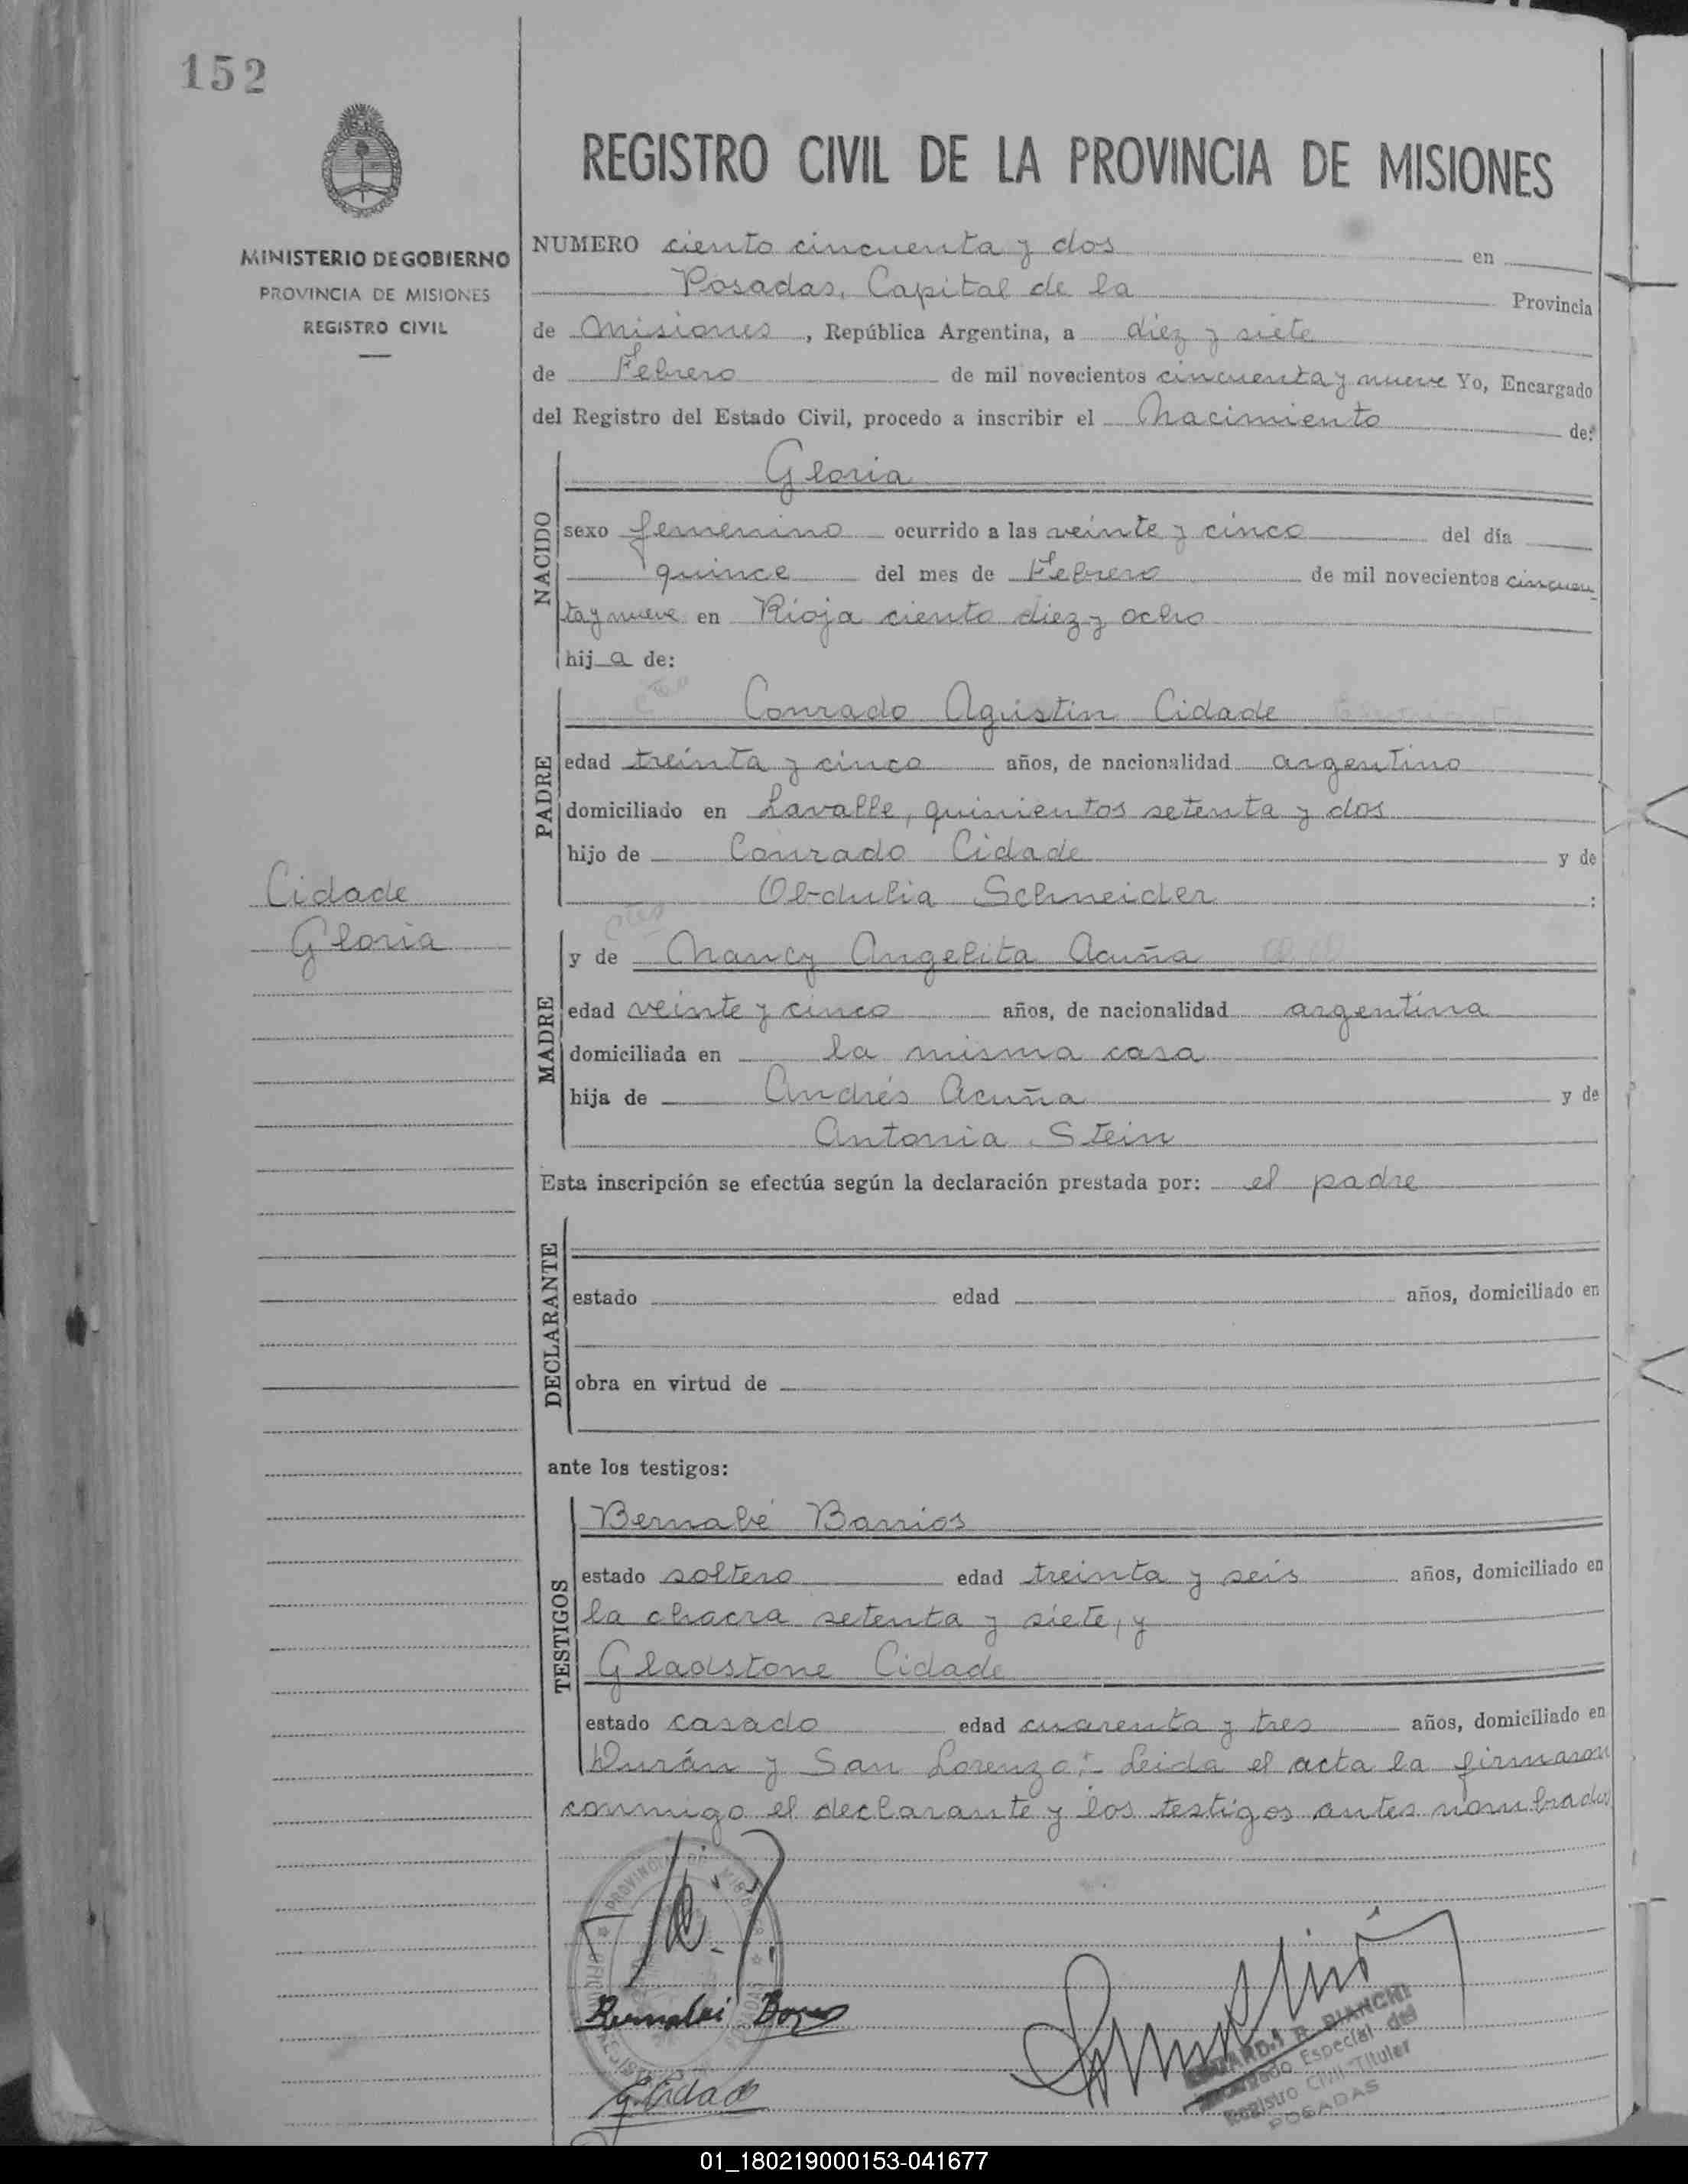 152
REGISTRO CIVIL DE LA PROVINCIA DE MISIONES
MINISTERIO DE GOBIERNO
PROVINCIA DE MISIONES
REGISTRO CIVIL
NUMERO ciento cincuenta y dos en
Posadas, Capital de la Provincia
de Misiones, República Argentina, a diez y siete
de Febrero de mil novecientos cincuenta y nueve Yo, Encargado
del Registro del Estado Civil, procedo a inscribir el Nacimiento de:
NACIDO
Gloria
sexo femenino ocurrido a las veinte y cinco del día
quince del mes de Febrero de mil novecientos cincuen
ta y nueve en Rioja ciento diez y ocho
hija de:
PADRE
Conrado Agustin Cidade
edad treinta y cinco años, de nacionalidad argentino
domiciliado en Lavalle, quinientos setenta y dos
hijo de Conrado Cidade y de
Obdulia Schneider :
Cidade
Gloria
MADRE
y de Nancy Angelita Acuña
edad veinte y cinco años, de nacionalidad argentina
domiciliada en la misma casa
hija de Andrés Acuña y de
Antonia Stein
Esta inscripción se efectúa según la declaración prestada por: el padre
DECLARANTE
estado edad años, domiciliado en
obra en virtud de
ante los testigos:
TESTIGOS
Bernabé Barrios
estado soltero edad treinta y seis años, domiciliado en
la chacra setenta y siete, y
Gladstone Cidade
estado casado edad cuarenta y tres años, domiciliado en
Durán y San Lorenzo:- Leida el acta la firmaron
conmigo el declarante y los testigos antes nombrados
PROVINCIA DE MISIONES
R. BIANCHI
Encargado Especial del
Registro Civil Titular
POSADAS
01_180219000153-041677